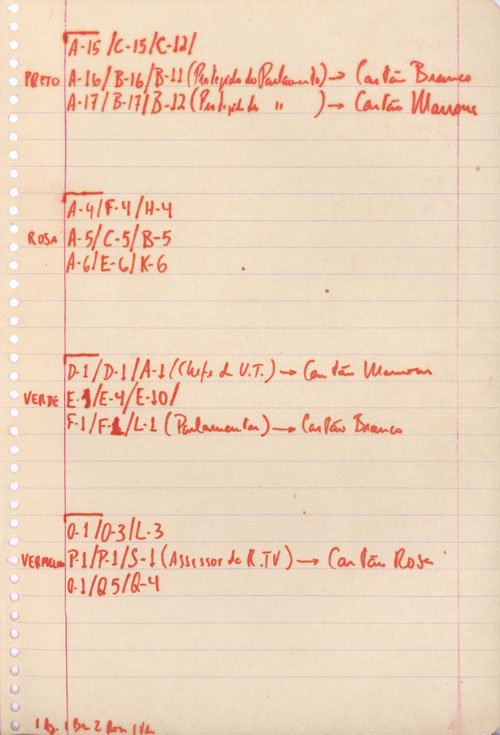 A-15/C-15/C-12/
PRETO A-16/B-16/B-11 (Protegido do Parlamento) → Cartão Branco
A-17/B-17/B-12 (Protegido " ) → Cartão Marrom
A-4/F-4/H-4
ROSA A-5/C-5/B-5
A-6/E-6/K-6
D-1/D-1/A-1 (Chefe d V.T.) → Cartão Marrom
VERDE E-1/E-4/E-10/
F-1/F-1/L-1 (Parlamentar) → Cartão Branco
O-1/O-3/L-3
VERMELHO P-1/P-1/S-1 (Assessor de R.TV) → Cartão Rosa
O-1/Q5/Q-4
1 Az. 1 Br. 2 1